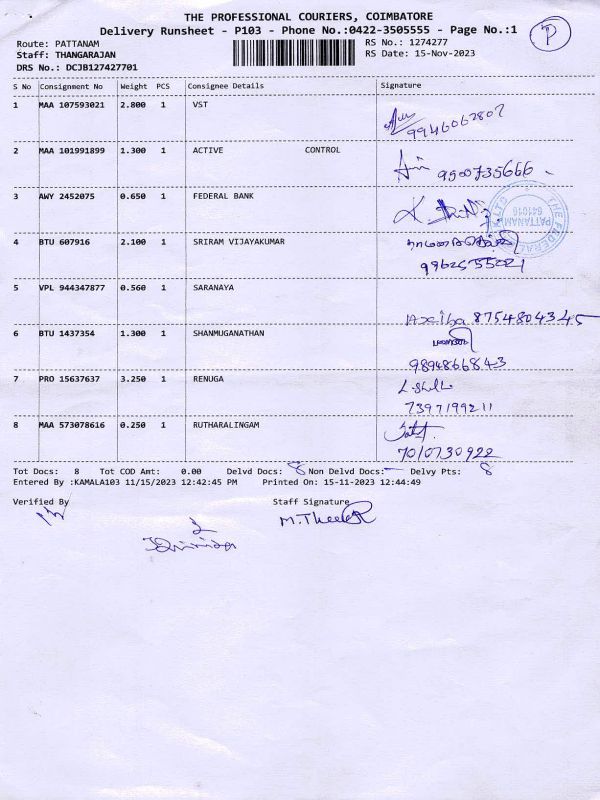 THE PROFESSIONAL COURIERS, COIMBATORE
Delivery Runsheet - P103 - Phone No.:0422-3505555 - Page No.:1
P
Route: PATTANAM
RS No.: 1274277
Staff: THANGARAJAN
RS Date: 15-Nov-2023
DRS No.: DCJB127427701
S No Consignment No Weight PCS Consignee Details Signature
1 MAA 107593021 2.800 1 VST
9946062807
2 MAA 101991899 1.300 1 ACTIVE CONTROL
9500735666
3 AWY 2452075 0.650 1 FEDERAL BANK
THE FEDERAL
PATTANAM
641016
4 BTU 607916 2.100 1 SRIRAM VIJAYAKUMAR
5 VPL 944347877 0.560 1 SARANAYA
8754804345
6 BTU 1437354 1.300 1 SHANMUGANATHAN
9894866843
7 PRO 15637637 3.250 1 RENUGA
7397199211
8 MAA 573078616 0.250 1 RUTHARALINGAM
7010730922
Tot Docs: 8 Tot COD Amt: 0.00 Delvd Docs: 8 Non Delvd Docs: — Delvy Pts: 8
Entered By :KAMALA103 11/15/2023 12:42:45 PM Printed On: 15-11-2023 12:44:49
Verified By Staff Signature